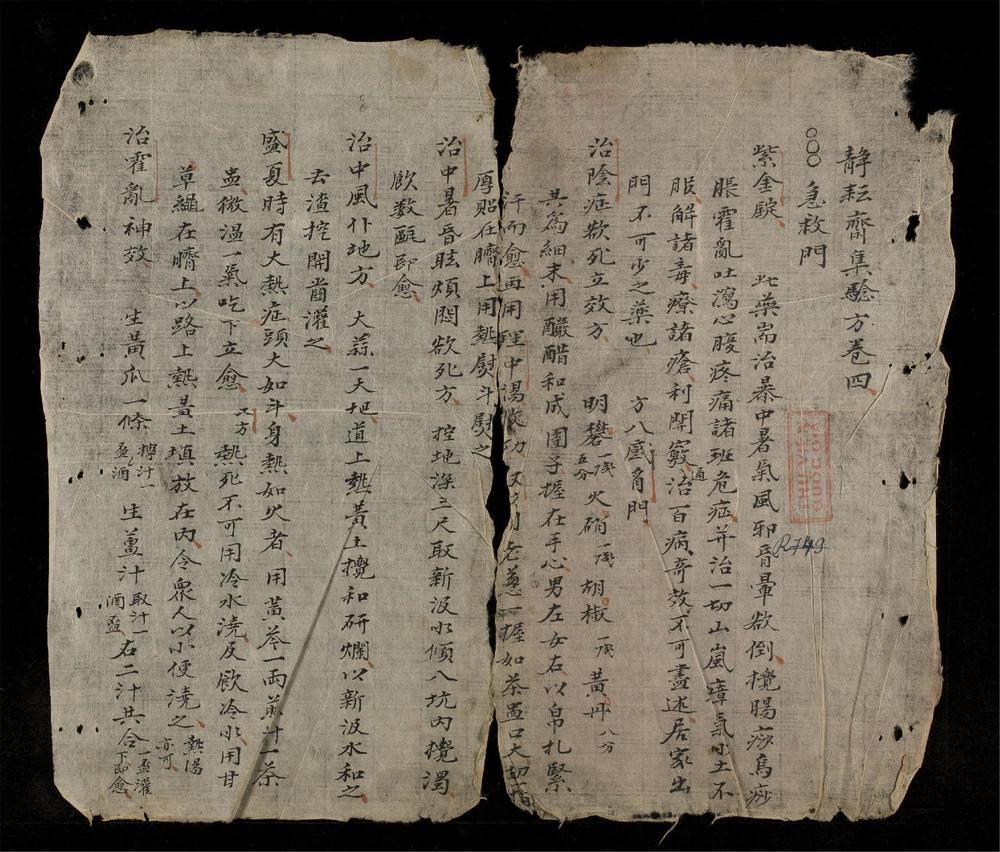 静耘齋集驗方卷四
○○○急救門
紫金錠　此藥耑治暴中暑氣風邪昏暈欲倒攪腸痧烏痧
脹霍亂吐瀉心腹疼痛諸班危症并治一切山嵐瘴氣水土不
服解諸毒療諸瘡利開竅通治百病奇效不可盡述居家出
門不可少之藥也　方八癘角門
治陰症欲死立效方　明礬一戔五分火硝一戔胡椒一戔黄丹八分
共為細末用釅醋和成團子握在手心男左女右以帛札緊
汗而愈再用理中湯 老葱一握如茶盃口大切
厚貼在臍上用熱熨斗熨之
治中暑昏眩煩悶欲死方　挖地深三尺取新汲水傾入坑内攪濁
飲数甌即愈
治中風仆地方　大蒜一大把道上熱黄土攪和研爛以新汲水和之
去渣挖開齒灌之
盛夏時有大熱症頭大如斗身熱如火者用黄芩一両煎汁一茶
盅微温一氣吃下立愈　又方熱死不可用冷水澆及飲冷水用甘
草繩在臍上以路上熱黄土填放在内令衆人以小便澆之熱湯亦可
治霍亂神效　生黄瓜一條擰汁一盃酒生薑汁取汁一酒盃右二汁共合一盃灌下即愈
R749